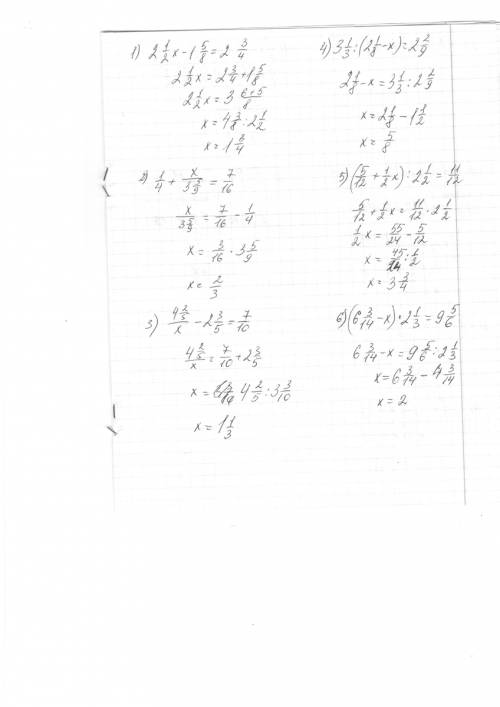 1) 2 1/2 x - 1 5/8 = 2 3/4
2 1/2 x = 2 3/4 + 1 5/8
2 1/2 x = 3 6+5/8
x = 4 3/8 : 2 1/2
x = 1 3/4
2) 1/4 + x/3 5/9 = 7/16
x/3 5/9 = 7/16 - 1/4
x = 3/16 · 3 5/9
x = 2/3
3) 4 2/5/x - 2 3/5 = 7/10
4 2/5/x = 7/10 + 2 3/5
x = 4 2/5 : 3 3/10
x = 1 1/3
4) 3 1/3 : (2 1/8 - x) = 2 2/9
2 1/8 - x = 3 1/3 : 2 2/9
x = 2 1/8 - 1 1/2
x = 5/8
5) (5/12 + 1/2 x) : 2 1/2 = 11/12
5/12 + 1/2 x = 11/12 · 2 1/2
1/2 x = 55/24 - 5/12
x = 45/24 : 1/2
x = 3 3/4
6) (6 3/14 - x) · 2 1/3 = 9 5/6
6 3/14 - x = 9 5/6 : 2 1/3
x = 6 3/14 - 4 3/14
x = 2